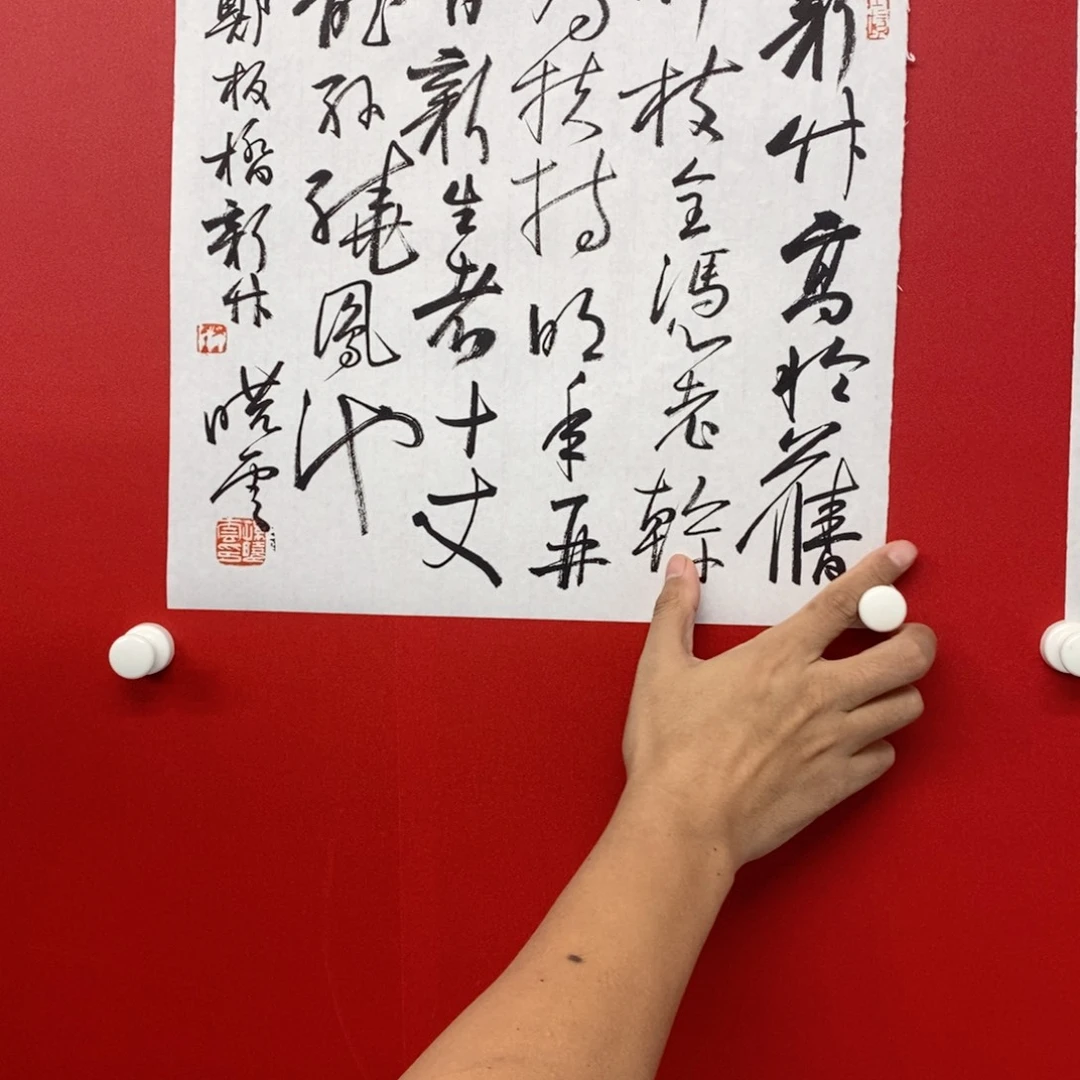 新竹高於舊
竹枝全憑老幹
為扶持明年再
有新生者十丈
龍孫繞鳳池
鄭板橋新竹 曉雲